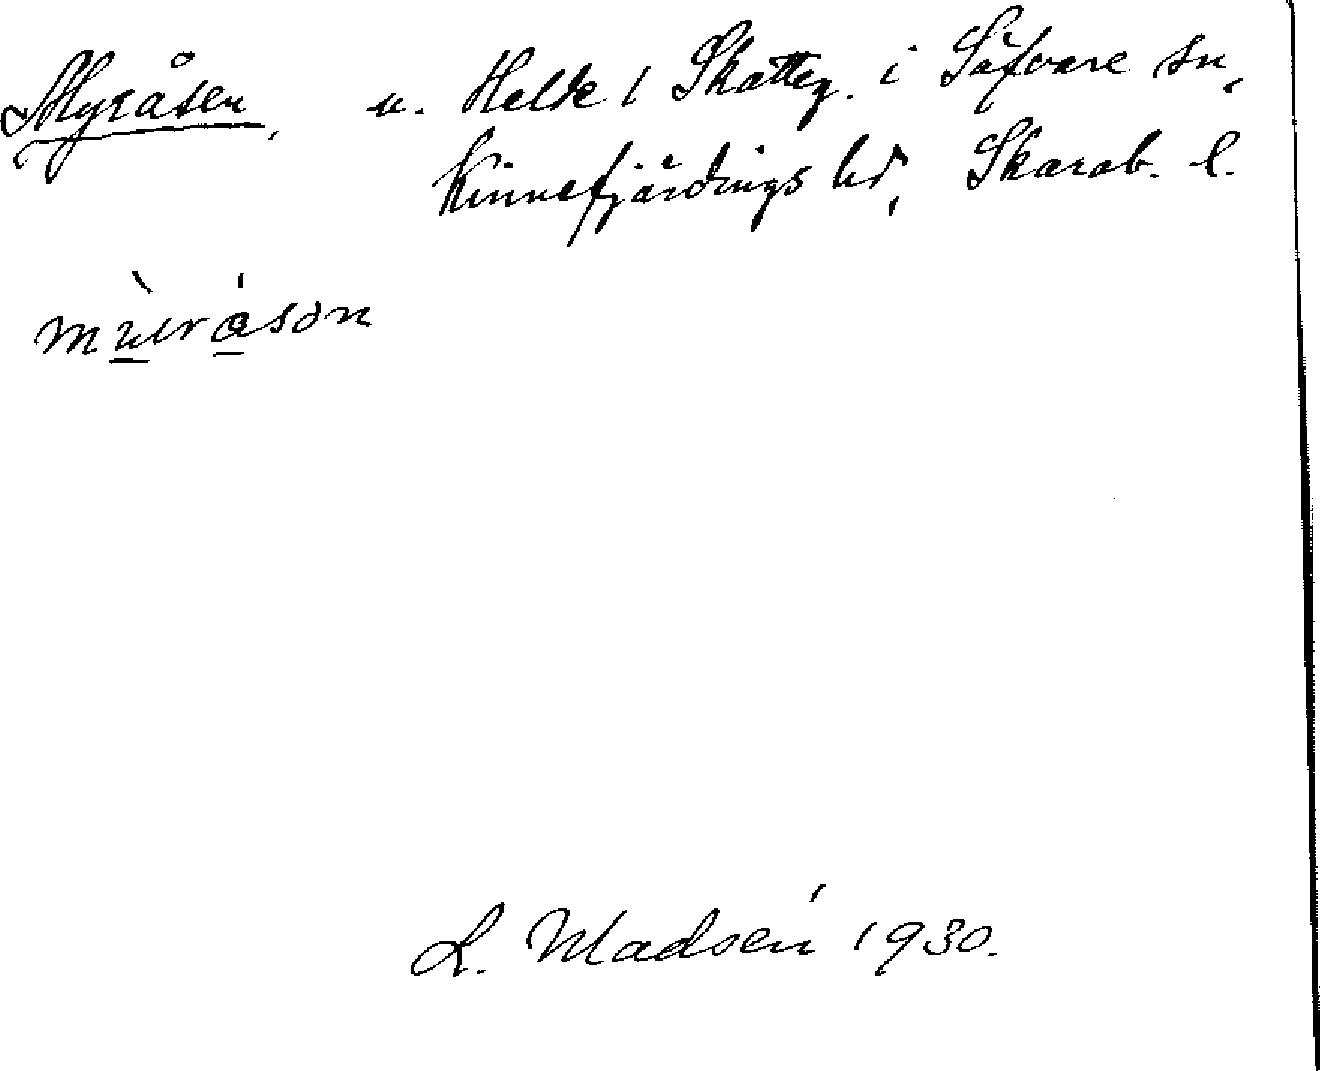 Myråsen, u. Helde 1 Skatteg. i Säfvare sn,
Kinnefjärdings hd, Skarab. l.
L. Madsén 1930.